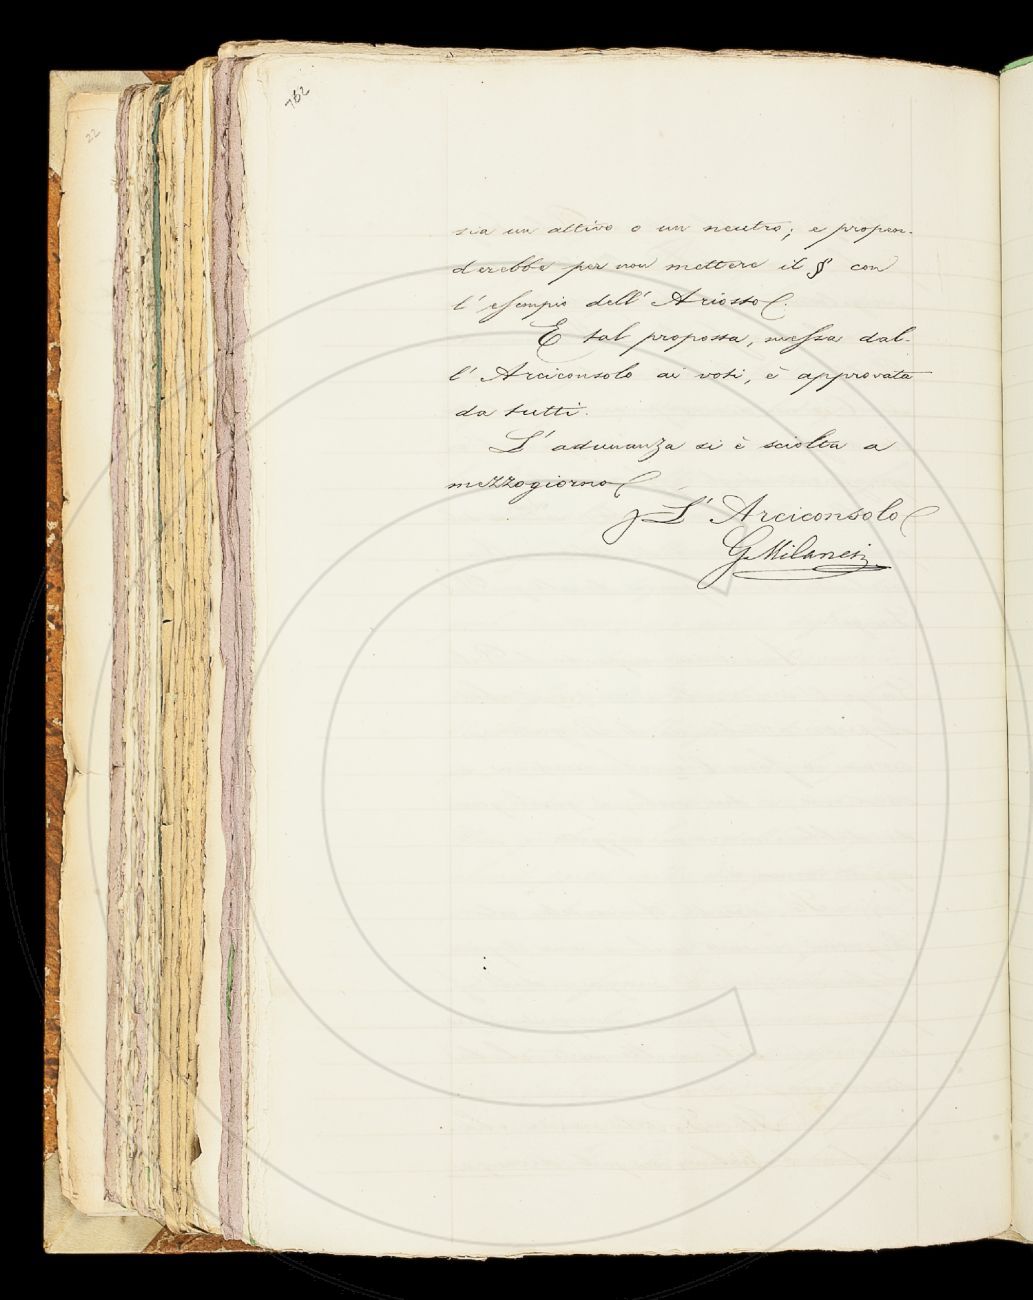 762
22
sia un attivo o un neutro; e propen-
derebbe per non mettere il § con
l'esempio dell'Ariosto.
E tal proposta, messa dal-
l'Arciconsolo ai voti, è approvata
da tutti.
L'adunanza si è sciolta a
mezzogiorno
L'Arciconsolo
G. Milanesi